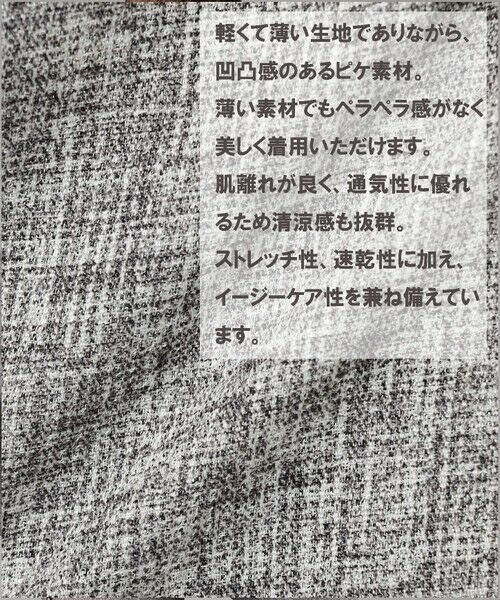 軽くて薄い生地でありながら、
凹凸感のあるピケ素材。
薄い素材でもペラペラ感がなく
美しく着用いただけます。
肌離れが良く、通気性に優れ
るため清涼感も抜群。
ストレッチ性、速乾性に加え、
イージーケア性を兼ね備えてい
ます。